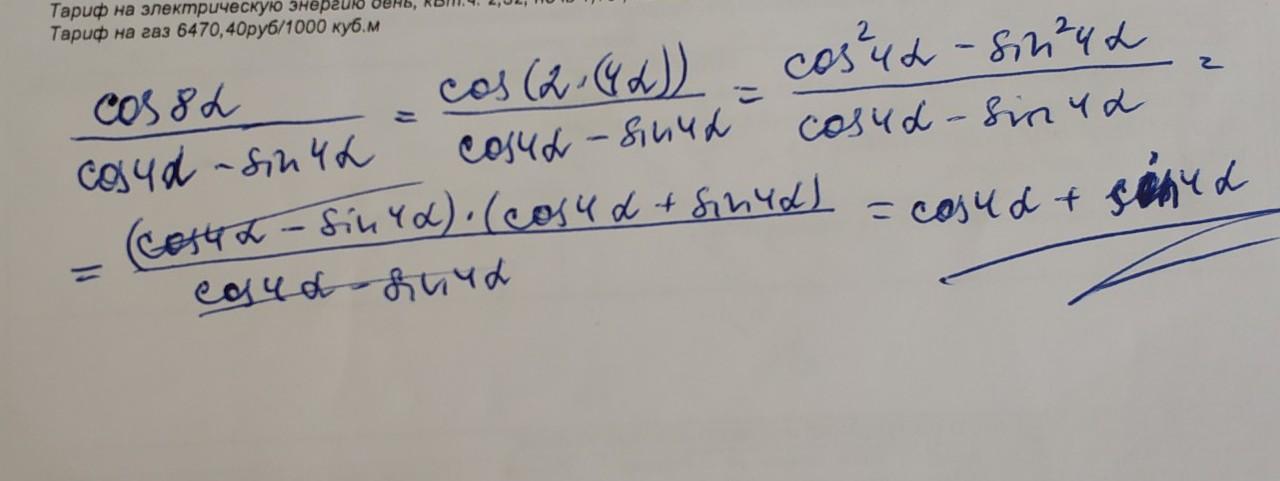 Тариф на электрическую энергию день, кВт.ч. 2,32,
Тариф на газ 6470,40руб/1000 куб.м
cos8α / (cos4α - sin4α) = cos(2·(4α)) / (cos4α - sin4α) = (cos²4α - sin²4α) / (cos4α - sin4α) =
= (cos4α - sin4α)·(cos4α + sin4α) / (cos4α - sin4α) = cos4α + sin4α